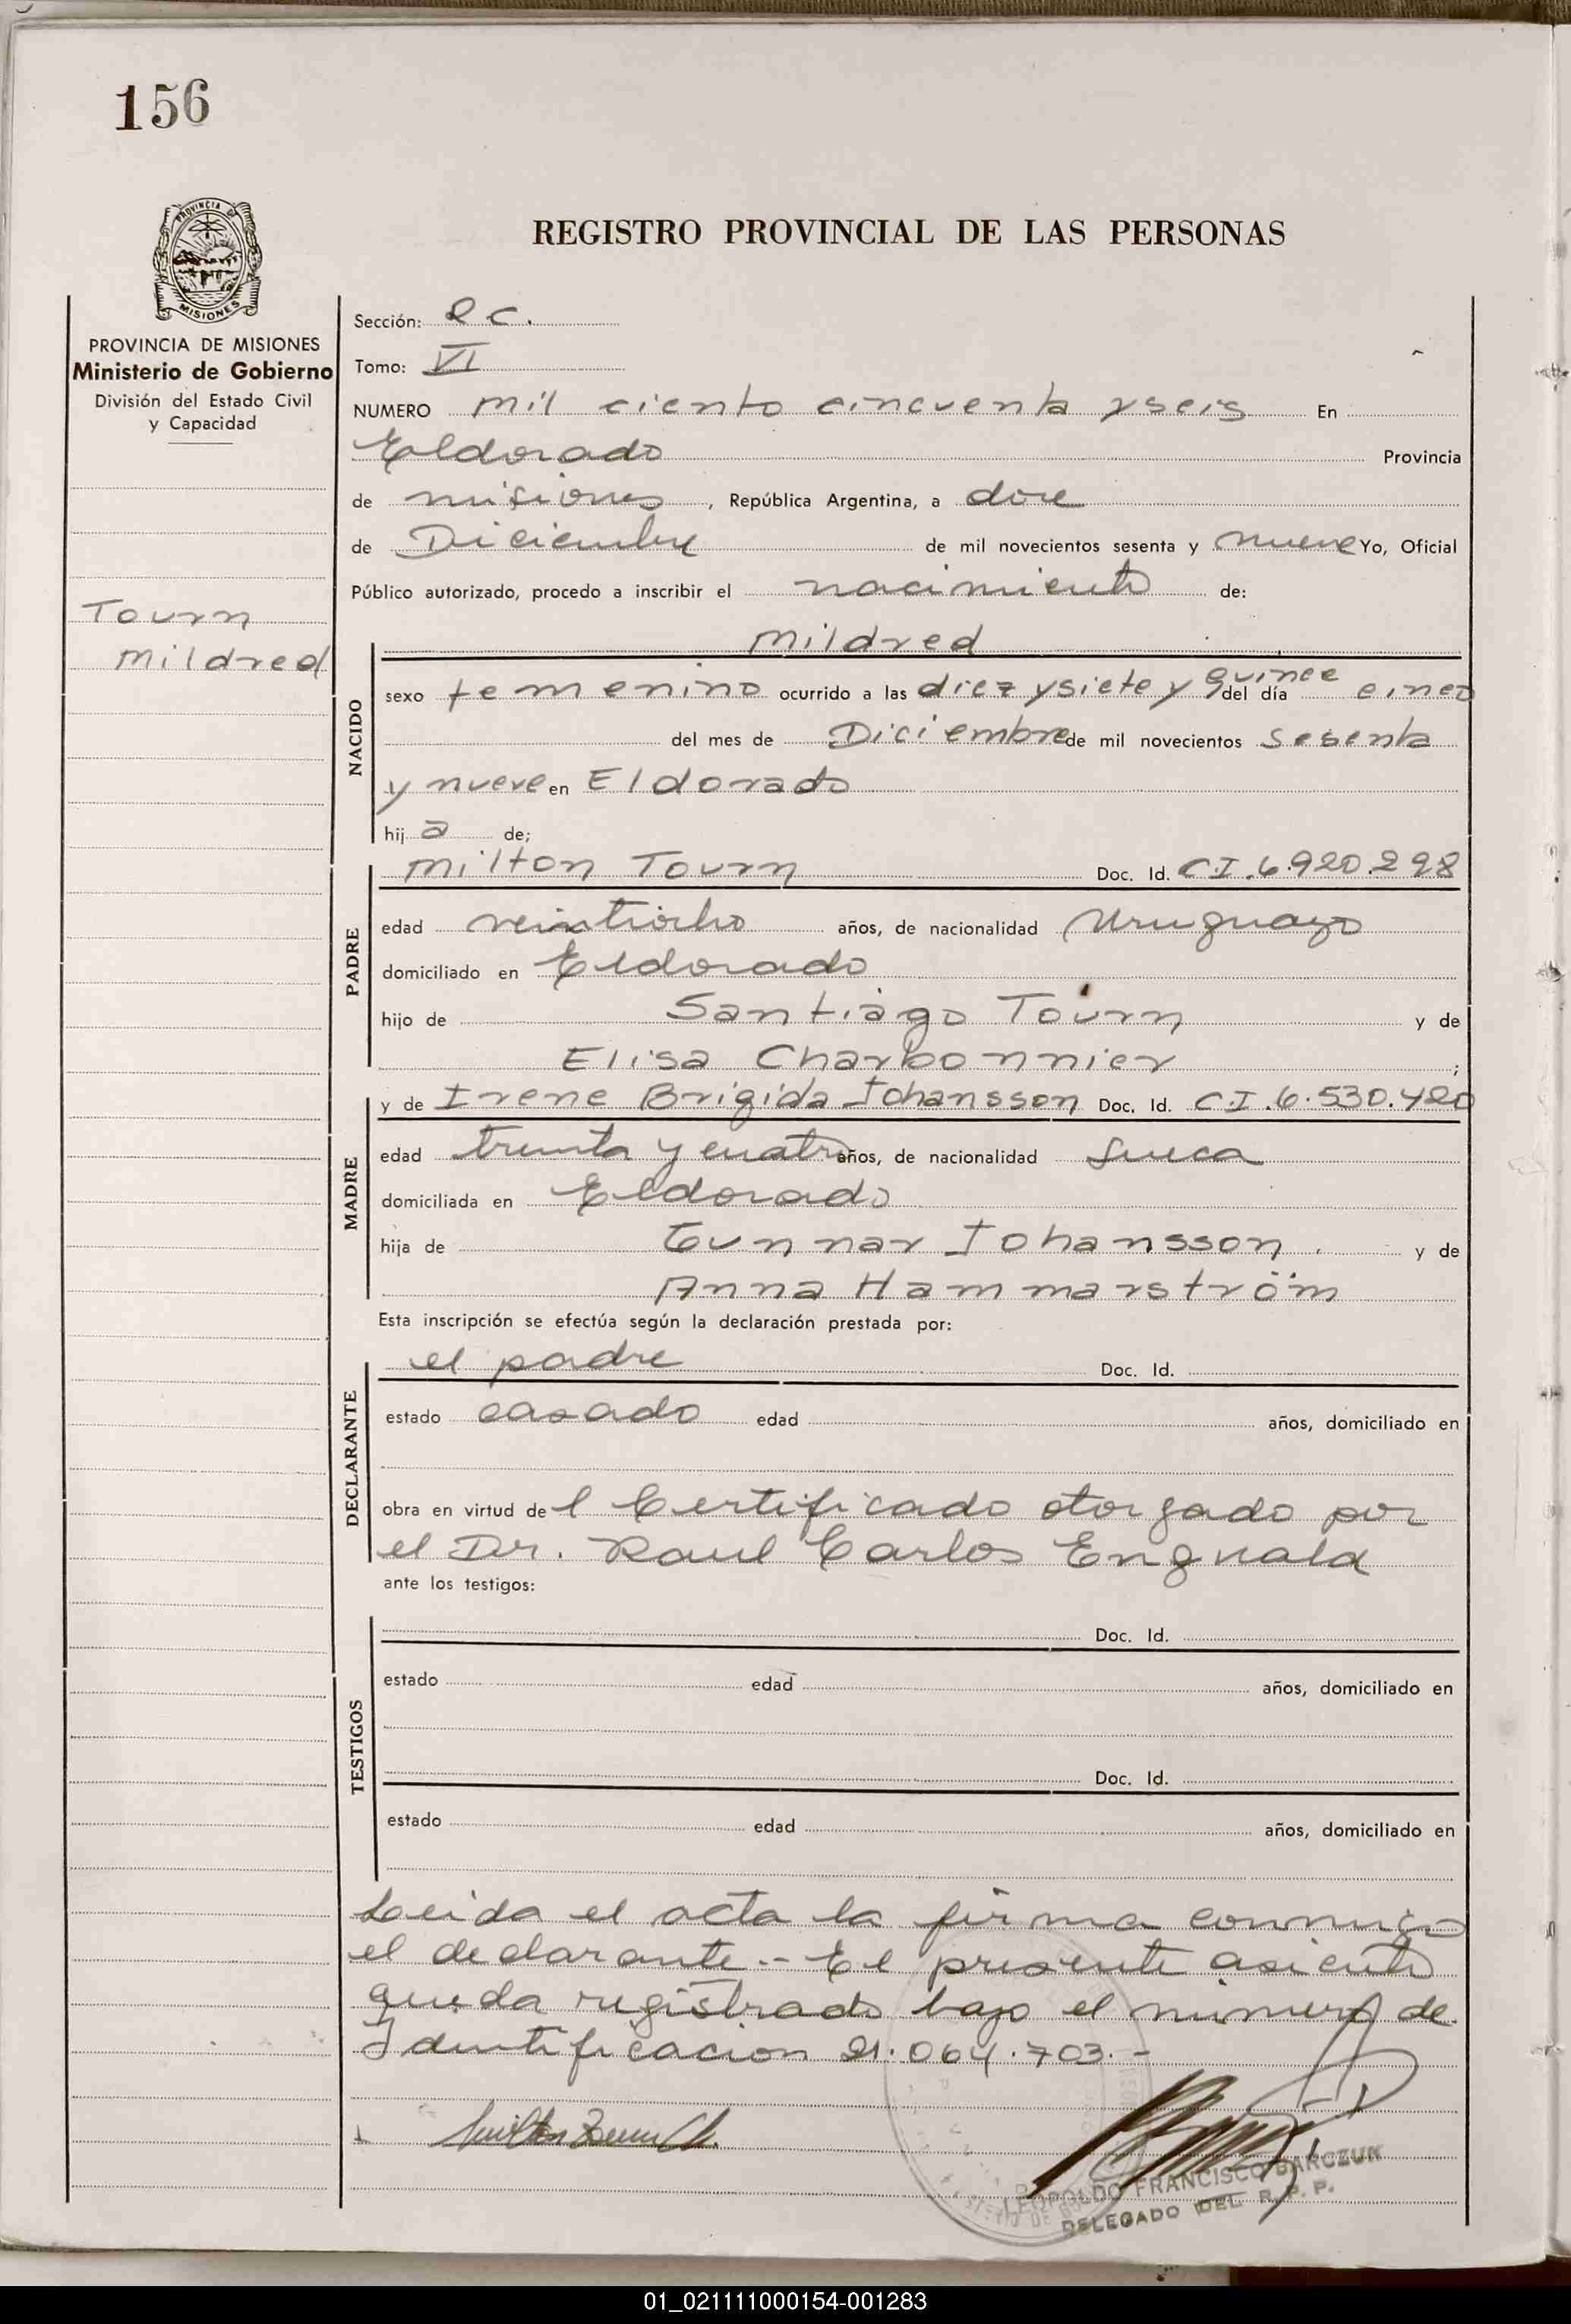 156
PROVINCIA DE
MISIONES
REGISTRO PROVINCIAL DE LAS PERSONAS
PROVINCIA DE MISIONES
Ministerio de Gobierno
División del Estado Civil
y Capacidad
Tourn
Mildred
Sección: R C.
Tomo: VI
NUMERO mil ciento cincuenta yseis En
Eldorado Provincia
de misiones, República Argentina, a doce
de Diciembre de mil novecientos sesenta y nueve Yo, Oficial
Público autorizado, procedo a inscribir el nacimiento de:
Mildred
NACIDO
sexo femenino ocurrido a las diez ysiete y quince del día cinco
del mes de Diciembre de mil novecientos sesenta
y nueve en Eldorado
hij a de;
PADRE
Milton Tourn Doc. Id. C.I.6.920.298
edad veintiocho años, de nacionalidad Uruguayo
domiciliado en Eldorado
hijo de Santiago Tourn y de
Elisa Charbonnier;
MADRE
y de Irene Brigida Johansson Doc. Id. C.I.6.530.420
edad treinta y cuatro años, de nacionalidad Sueca
domiciliada en Eldorado
hija de Gunnar Johansson. y de
Anna Hammarström
Esta inscripción se efectúa según la declaración prestada por:
DECLARANTE
el padre Doc. Id.
estado casado edad años, domiciliado en
obra en virtud de l Certificado otorgado por
el Dr. Raul Carlos
ante los testigos:
TESTIGOS
Doc. Id.
estado edad años, domiciliado en
Doc. Id.
estado edad años, domiciliado en
Leida el acta la firma conmigo
el declarante.- El presente asiento
queda registrado bajo el número de
Identificacion 21.064.703.-
LEOPOLDO FRANCISCO BARCZUK
DELEGADO DEL R. P. P.
01_021111000154-001283